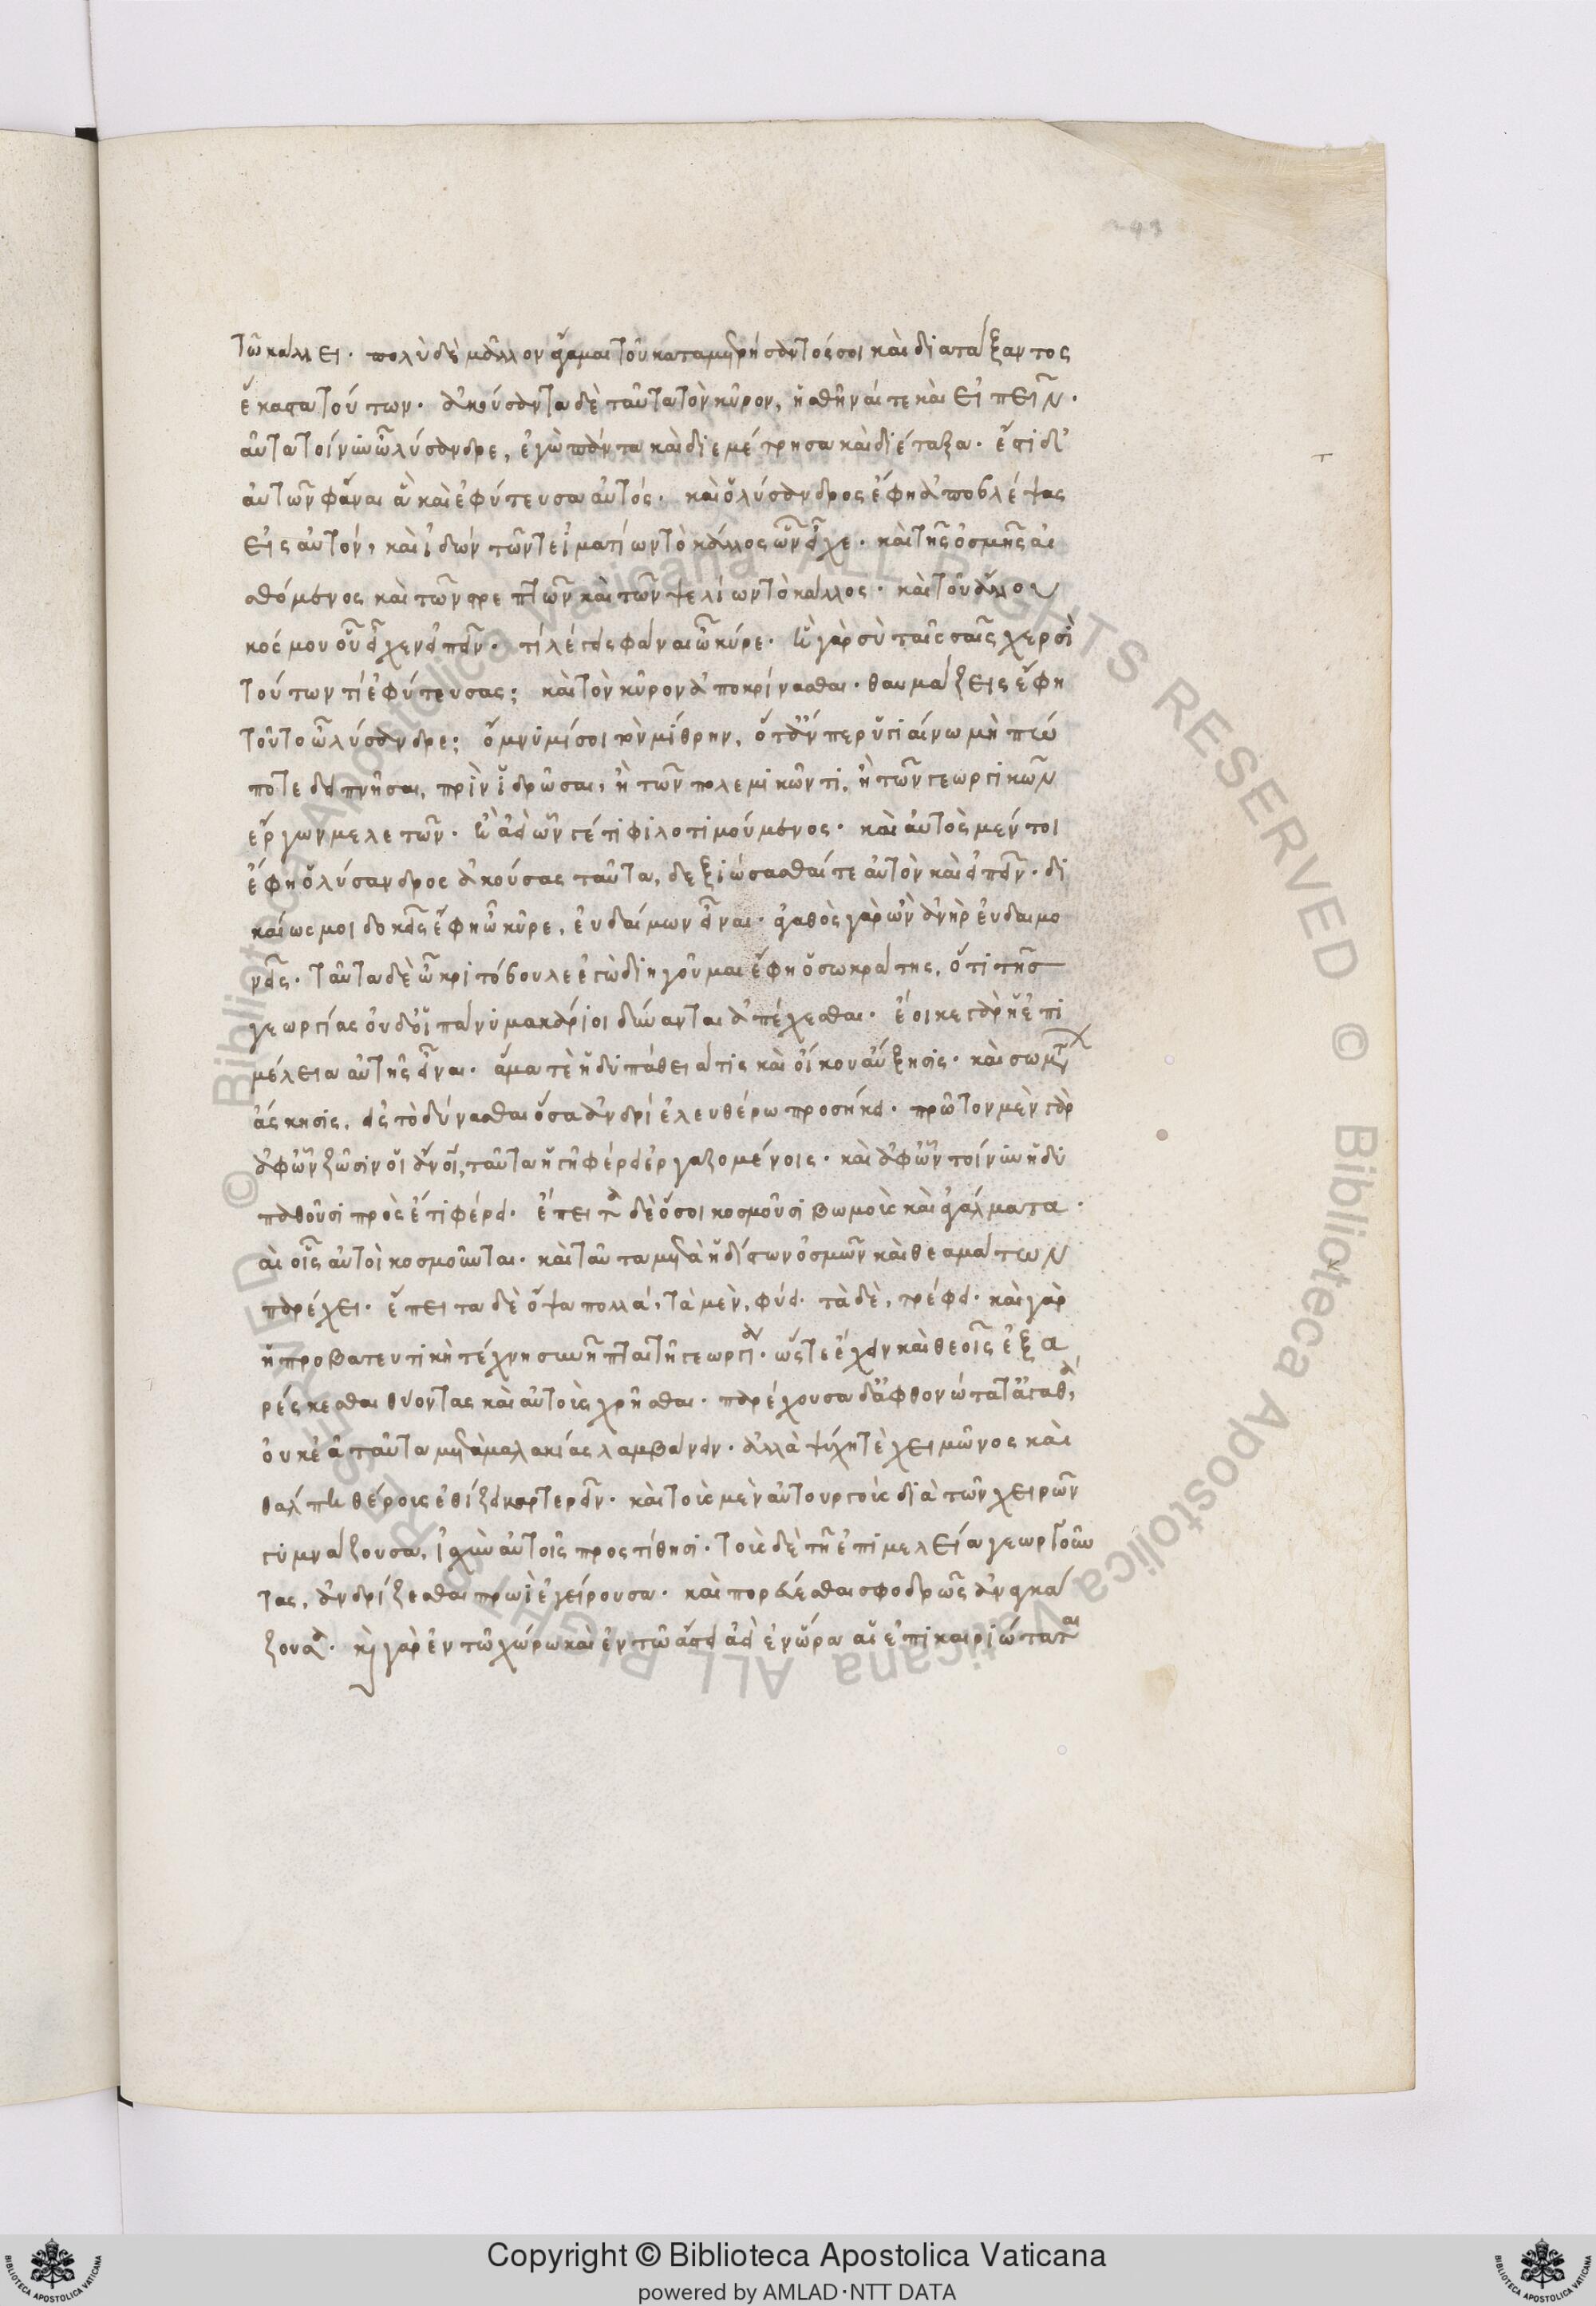 τῶ κάλλει. πολὺ δὲ μᾶλλον ἄγαμαι τοῦ καταμετρήσαντός σοι καὶ διατάξαντος
ἕκαστα τούτων. ἀκούσαντα δὲ ταῦτα τὸν κῦρον, ἡσθῆναί τε καὶ εἰπεῖν.
αῦτα τοίνυν ὦ λύσανδρε, ἐγὼ πάντα καὶ διεμέτρησα καὶ διέταξα. ἔστι δ'
αὐτῶν φάναι ἃ καὶ ἐφύτευσα αὐτός. καὶ ὁ λύσανδρος ἔφη ἀποβλέψας
εἰς αὐτόν, καὶ ἰδών τῶν τε ἱματίων τὸ κάλλος ὧν εἶχε. καὶ τῆς ὀσμῆς αἰ
σθόμενος καὶ τῶν στρεπτῶν καὶ τῶν ψελίων τὸ κάλλος. καὶ τοῦ ἄλλου
κόσμου οὗ εἶχεν εἰπεῖν. τί λέγεις φάναι ὦ κύρε. ἦ γὰρ σὺ ταῖς σαῖς χερσὶ
τούτων τί ἐφύτευσας; καὶ τὸν κῦρον ἀποκρίνασθαι. θαυμάζεις ἔφη
τοῦτο ὦ λύσανδρε; ὄμνυμί σοι τὸν μίθρην, ὅτ' ἄν περ ὑγιαίνω μὴ πώ
ποτε δειπνῆσαι, πρὶν ἱδρῶσαι, ἢ τῶν πολεμικῶν τι, ἢ τῶν γεωργικῶν
ἔργων μελετῶν. ἢ ἀεὶ ὧν γέ τι φιλοτιμούμενος. καὶ αὐτὸς μέν τοι
ἔφη ὁ λύσανδρος ἀκούσας ταῦτα, δεξιώσασθαί τε αὐτὸν καὶ εἰπεῖν. δι
καίως μοι δοκεῖς ἔφη ὦ κῦρε, εὐδαίμων εἶναι. ἀγαθὸς γὰρ ὢν ἀνὴρ εὐδαιμο
νεῖς. ταῦτα δὲ ὦ κριτόβουλε ἐγὼ διηγοῦμαι ἔφη ὁ σωκράτης, ὅτι τῆς
γεωργίας οὐδ' οἱ πάνυ μακάριοι δύνανται ἀπέχεσθαι. ἔοικε γὰρ ἡ ἐπι
μέλεια αὐτῆς εἶναι. ἅμα τὲ ἡδυπάθειά τις καὶ οἴκου αὔξησις. καὶ σωμάτων
ἄσκησις, εἰς τὸ δύνασθαι ὅσα ἀνδρί ἐλευθέρω προσήκει. πρῶτον μὲν γὰρ
ἀφ' ὧν ζῶσιν οἱ ἄνοι, ταῦτα ἡ γῆ φέρει ἐργαζομένοις. καὶ ἀφ' ὧν τοίνυν ἡδυ
παθοῦσι προς ἔτι φέρει. ἔπειτα δὲ ὅσοι κοσμοῦσι βωμοὺς καὶ ἀγάλματα.
αἱ οἷς αὐτοὶ κοσμοῦνται. καὶ ταῦτα μετὰ ἡδίστων ὀσμῶν καὶ θεαμάτων
παρέχει. ἔπειτα δὲ ὄψα πολλά, τὰ μὲν, φύει. τὰ δὲ, τρέφει. καὶ γὰρ
ἡ προβατευτικὴ τέχνη συνῆπται τῆ γεωργία. ὥστε ἔχειν καὶ θεοῖς ἐξα
ρέσκεσθαι θύοντας καὶ αὐτοὺς χρῆσθαι. παρέχουσα δ' ἀφθονώτατα ἀγαθὰ,
οὐκ ἐᾶ ταῦτα μετὰ μαλακίας λαμβάνειν. ἀλλὰ ψύχη τὲ χειμῶνος καὶ
θάλπη θέρους ἐθίζει καρτερεῖν. καὶ τοὺς μὲν αὐτουργοὺς διὰ τῶν χειρῶν
γυμνάζουσα, ἰσχὺν αὐτοῖς προστίθησι. τοὺς δὲ τῆ ἐπιμελεία γεωργοῦν
τας, ἀνδρίζεσθαι πρωῒ ἐγείρουσα. καὶ πορεύεσθαι σφοδρῶς ἀναγκά
ζουσα. καὶ γὰρ ἐν τῶ χώρω καὶ ἐν τῶ ἄστει ἀεὶ ἐν ὥρα αἱ ἐπικαιριώταται
Copyright © Biblioteca Apostolica Vaticana
powered by AMLAD·NTT DATA